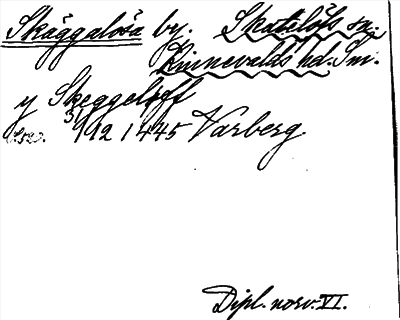 Skäggalösa by. Skatelövs sn.
Kinnevalds hd. Sm.
y Skeggeløff
S. 520. 31/12 1445 Varberg
Dipl. norv. VI.